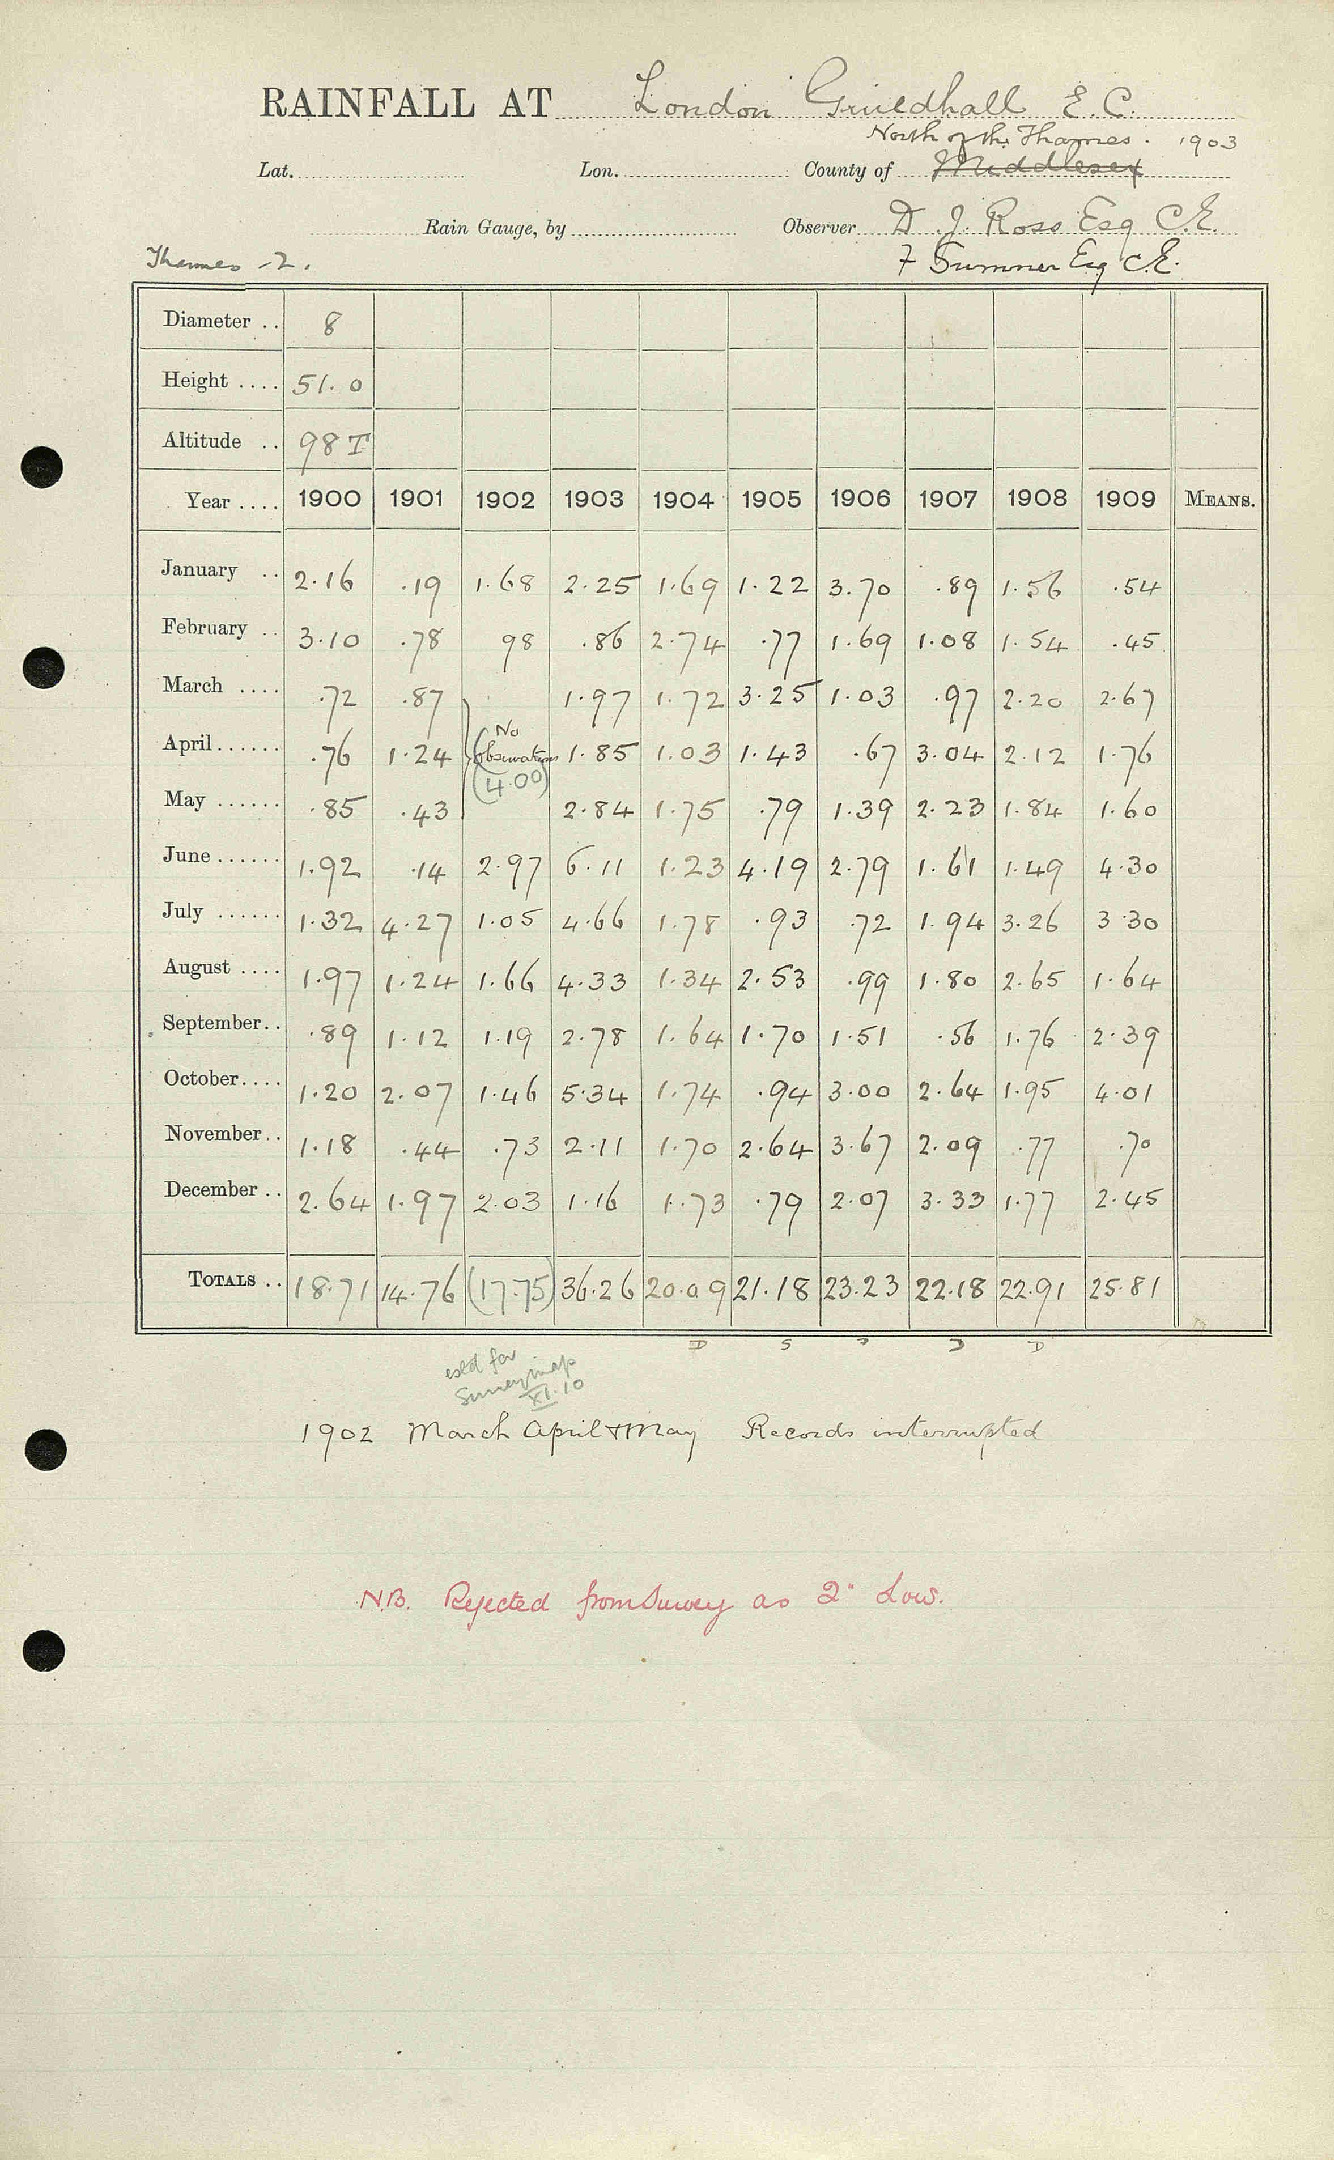 RAINFALL AT London Guildhall E.C.
North of the Thames. 1903
Lat. Lon. County of Middlesex
Rain Gauge, by Observer D. J. Ross Esq C.E.
Thames .2. F Sumner Esq C.E.
Diameter .. 8
Height .... 51.0
Altitude .. 98 T
Year .... 1900 1901 1902 1903 1904 1905 1906 1907 1908 1909 MEANS.
January .. 2.16 .19 1.68 2.25 1.69 1.22 3.70 .89 1.56 .54
February .. 3.10 .78 98 .86 2.74 .77 1.69 1.08 1.54 .45
March .... .72 .87 1.97 1.72 3.25 1.03 .97 2.20 2.67
April...... .76 1.24 No observations (4.00) 1.85 1.03 1.43 .67 3.04 2.12 1.76
May ...... .85 .43 2.84 1.75 .79 1.39 2.23 1.84 1.60
June...... 1.92 .14 2.97 6.11 1.23 4.19 2.79 1.61 1.49 4.30
July ...... 1.32 4.27 1.05 4.66 1.78 .93 .72 1.94 3.26 3 30
August .... 1.97 1.24 1.66 4.33 1.34 2.53 .99 1.80 2.65 1.64
September.. .89 1.12 1.19 2.78 1.64 1.70 1.51 .56 1.76 2.39
October.... 1.20 2.07 1.46 5.34 1.74 .94 3.00 2.64 1.95 4.01
November.. 1.18 .44 .73 2.11 1.70 2.64 3.67 2.09 .77 .70
December .. 2.64 1.97 2.03 1.16 1.73 .79 2.07 3.33 1.77 2.45
TOTALS .. 18.71 14.76 (17.75) 36.26 20.09 21.18 23.23 22.18 22.91 25.81
D S D D
estd for
Survey map
XI.10
1902 March April & May Records interrupted
N.B. Rejected from Survey as 2" Low.